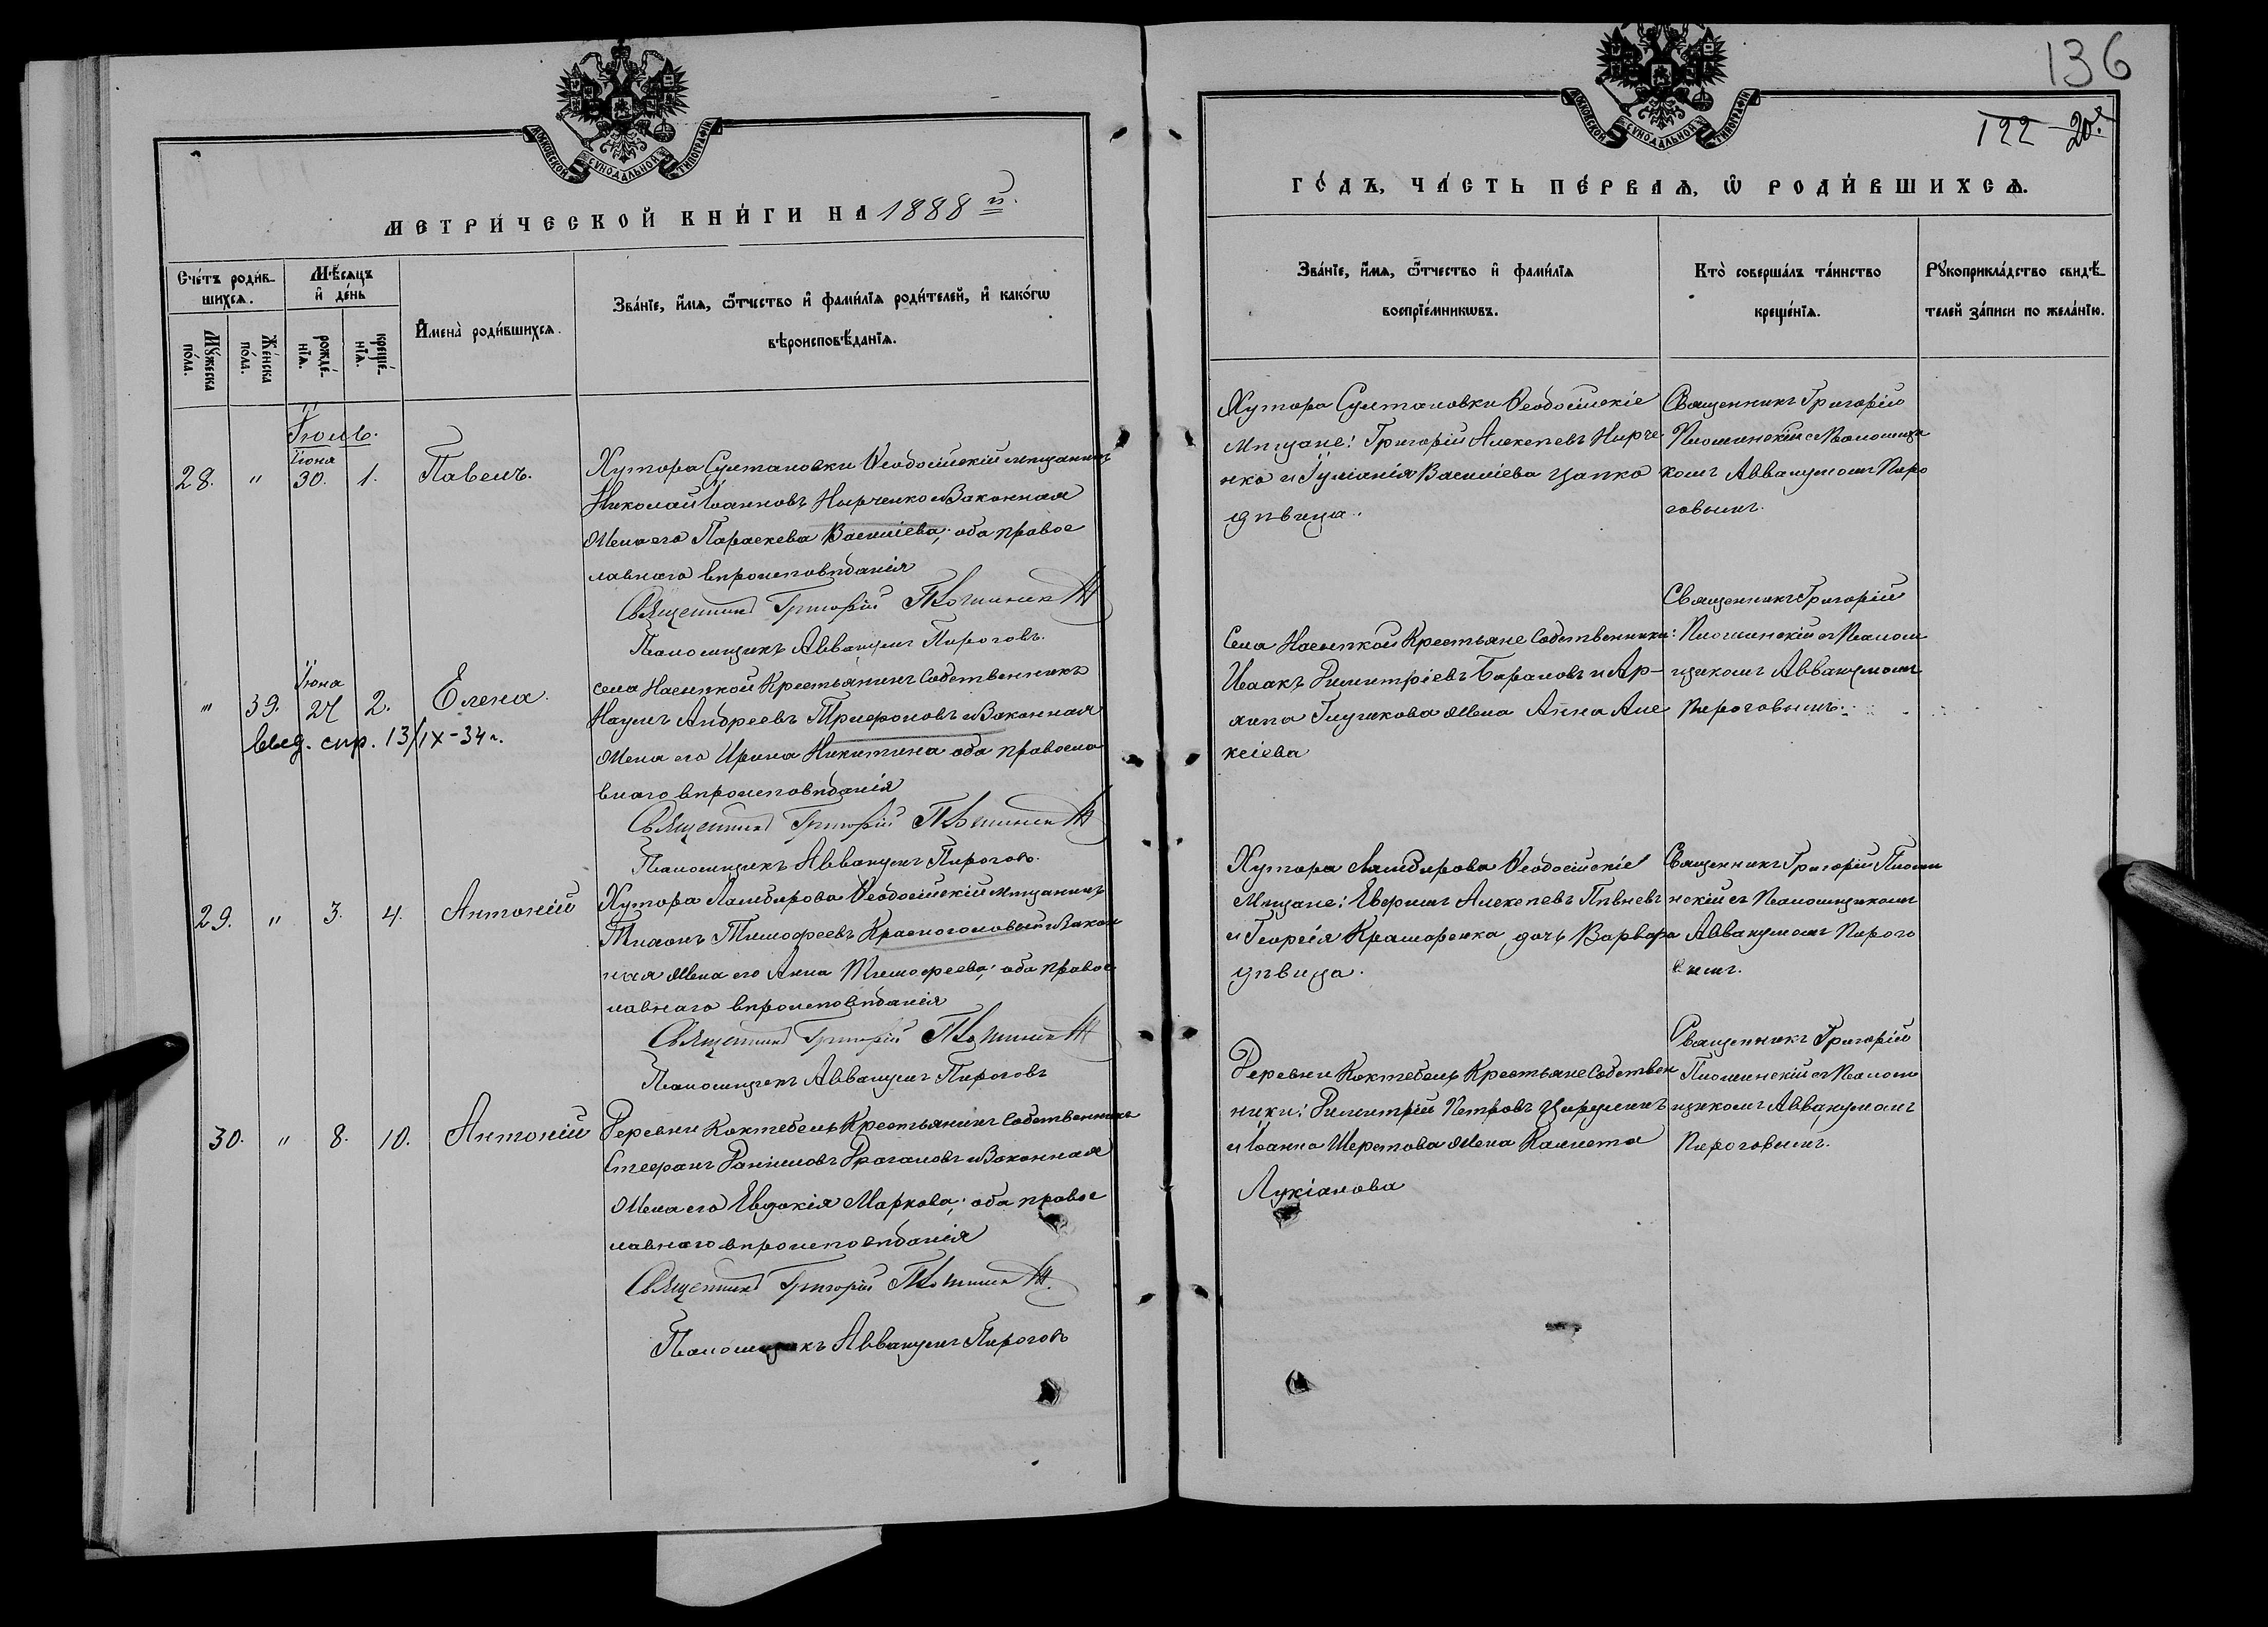 МОСКОВСКОЙ СѴНОДАЛЬНОЙ ТИПОГРАФІИ
МЕТРИ́ЧЕСКОЙ КНИ́ГИ НА 1888 й.
Сче́тъ роди́в-
шихсѧ.
Мѣ́сѧцъ
и҆ де́нь
Мꙋ́жеска
по́ла.
Же́нска
по́ла.
рожде́-
нїѧ.
креще́-
нїѧ.
И҆мена̀ роди́вшихсѧ.
Зва́нїе, и҆́мѧ, ѻ҆́тчество и҆ фами́лїѧ роди́телей, и҆ како́гѡ
вѣроисповѣ́данїѧ.
Іюль.
28. " Іюня 30. 1. Павелъ.
Хутора Султановки Ѳеодосійскій мѣщанинъ
Николай Іоанновъ Нырченко и Законная
Жена его Параскева Василіева; оба правос
лавнаго вѣроисповѣданія
Священникъ Григорій
Псаломщикъ Аввакумъ Пироговъ.
" 39. Іюна 27 2. Елена.
выд. спр. 13/IX-34 г.
села Насыпкой Крестьянинъ Собственникъ
Наумъ Андреевъ Трифоновъ и Законная
Жена его Ирина Никитина оба правосла
внаго вѣроисповѣданія
Священникъ Григорій
Псаломщикъ Аввакумъ Пироговъ.
29. " 3. 4. Антоній
Хутора Ламбирова Ѳеодосійскій мѣщанинъ
Тихонъ Тимофеевъ Красноголовый и Закон
ная Жена его Анна Тимофеева; оба правос
лавнаго вѣроисповѣданія
Священникъ Григорій
Псаломщикъ Аввакумъ Пироговъ
30. " 8. 10. Антоній
Деревни Коктебель Крестьянинъ Собственникъ
Стефанъ Даніиловъ Драгановъ и Законная
Жена его Евдокія Маркова; оба правос
лавнаго вѣроисповѣданія
Священникъ Григорій
Псаломщикъ Аввакумъ Пироговъ
136
122 20.
МОСКОВСКОЙ СѴНОДАЛЬНОЙ ТИПОГРАФІИ
ГО́ДЪ, ЧА́СТЬ ПЕ́РВАѦ, Ѡ҆ РОДИ́ВШИХСѦ.
Зва́нїе, и҆́мѧ, ѻ҆́тчество и҆ фами́лїѧ
воспрїе́мникѡвъ.
Кто̀ соверша́лъ та́инство
креще́нїѧ.
Рꙋкоприкла́дство свидѣ́-
телей за́писи по жела́нїю.
Хутора Султановки Ѳеодосійскіе
Мѣщане: Григорій Алексѣевъ Нирче-
нко и Іуліанія Василіева Цапко
дѣвица.
Священникъ Григорій
съ Псаломщи
комъ Аввакумомъ Пиро
говымъ.
Села Насыпкой Крестьяне Собственники:
Исаакъ Димитріевъ Барановъ и Ар-
Жена Анна Але
ксіева
Священникъ Григорій
съ Псалом
щикомъ Аввакумомъ
Пироговымъ.
Хутора Ламбирова Ѳеодосійскіе
Мѣщане: Евфимъ Алексѣевъ Пивневъ
и Георгія Крамаренка дочь Варвара
дѣвица.
Священникъ Григорій
съ Псаломщикомъ
Аввакумомъ Пирого
вымъ.
Деревни Коктебель Крестьяне Собствен
ники: Димитрій Петровъ
и Іоанна Шеретова Жена
Лукіанова
Священникъ Григорій
съ Псалом
щикомъ Аввакумомъ
Пироговымъ.